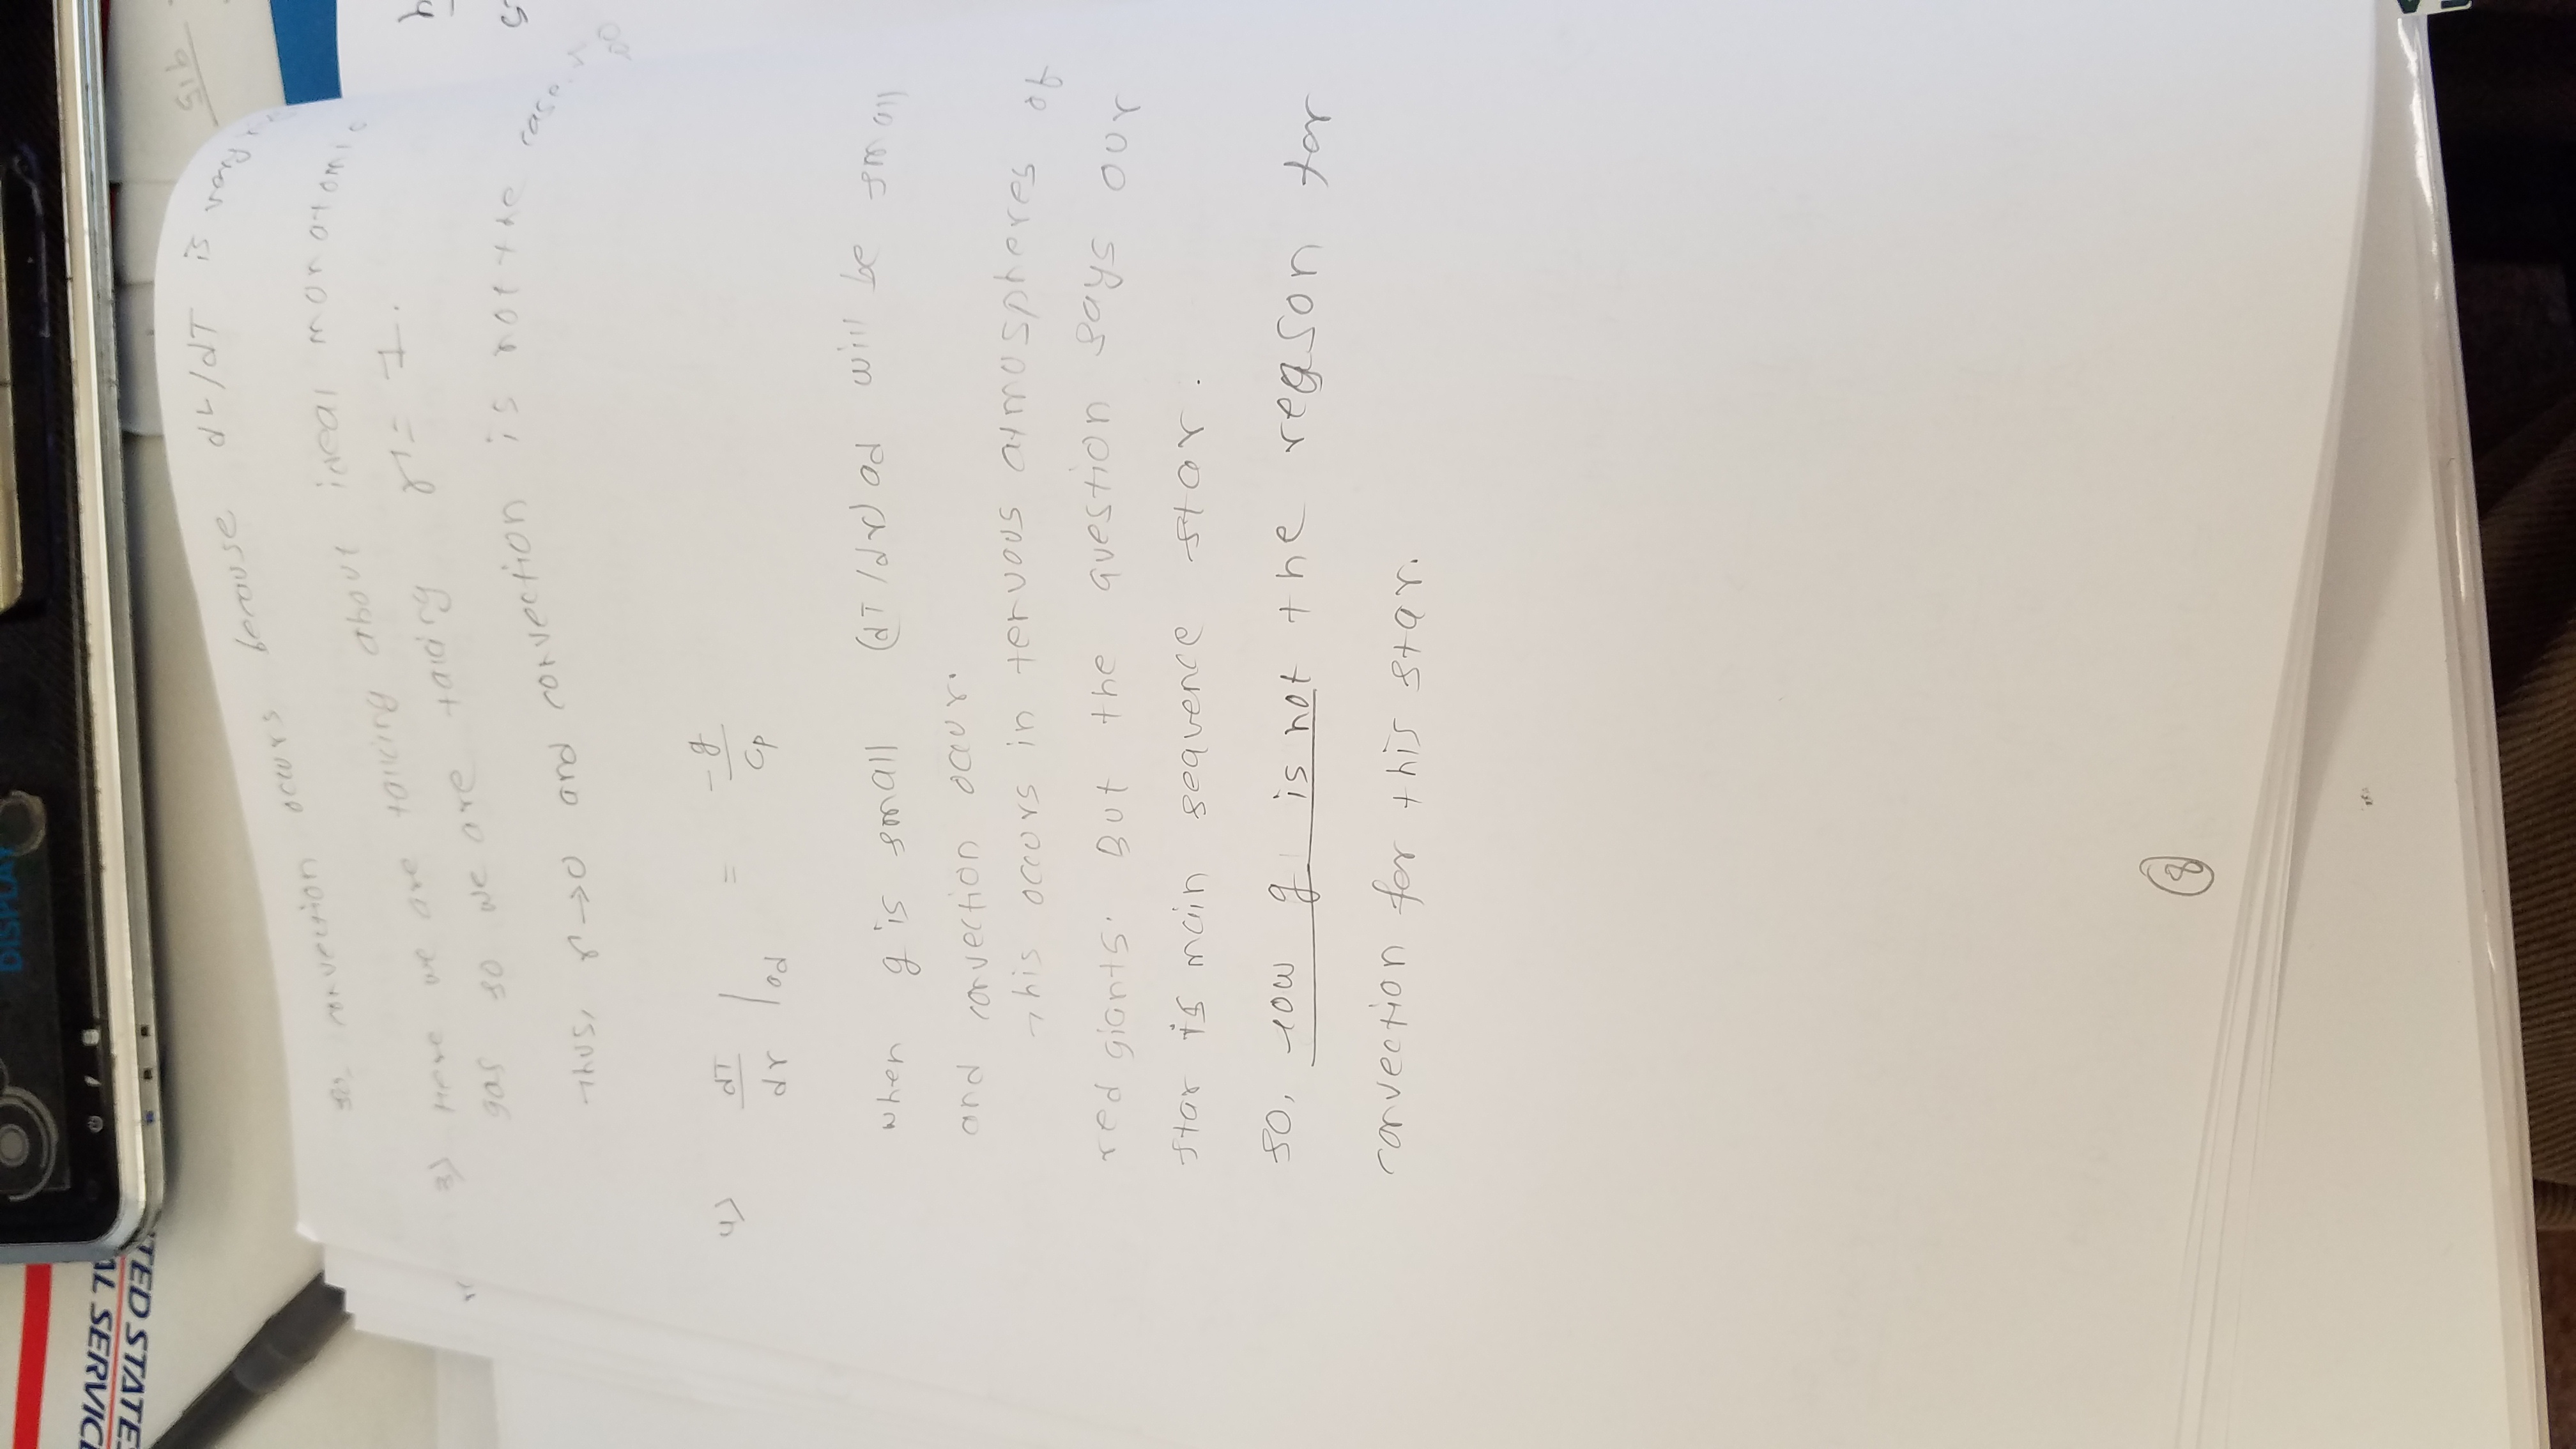 DISPLAY
AL SERVICE
TED STATES
915
so, convection occurs because dL/dT is very
3) Here we are talking about ideal monotomic
gas so we are taking γ = 1.
Thus, γ → 0 and convection is not the case.
4) dT/dr |ad = -g/Cp
when g is small (dT/dr)ad will be small
and convection occur.
This occurs in tervous atmospheres of
red giants. But the question says our
star is main sequence star.
so, low g is not the reason for
convection for this star.
8